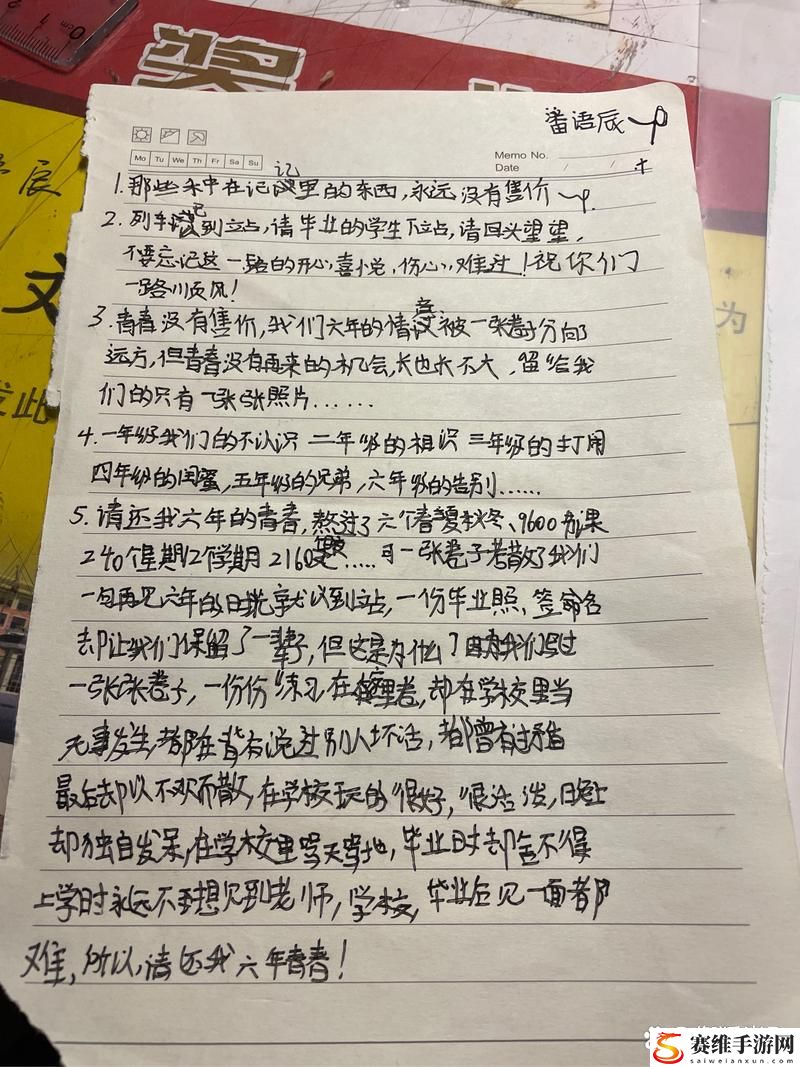 奖
番语辰
Memo No.
Mo Tu We Th Fr Sa Su
Date / /
记
1. 那些夹在记里的东西,永远没有售价
2. 列车记到立占,请毕业的学生下立占,请回头望望,
不要忘记这一路的开心,喜悦,伤心,难过!祝你们
一路川页风!
3. 青春没有售价,我们六年的情被一张卷子分向
远方,但青春没有再来的机会,长也长不大,留给我
们的只有一张张照片......
4. 一年级我们的不认识 二年级的相识 三年级的打闹
四年级的闺蜜,五年级的兄弟,六年级的告别......
5. 请还我六年的青春,熬过了六个春夏秋冬、9600节课
240个星期12个学期2160.....可一张卷子考散了我们
一句再见六年的时光就以到立占,一份毕业照、签命名
却让我们保留了一辈子,但这是为什么?因为我们写过
一张张卷子,一份份练习在里卷,却在学校里当
无事发生,都在背有说过别人坏话,都曾有过矛盾
最后却以不欢而散,在学校玩的很好,很活泼,晚上
却独自发呆,在学校里骂天骂地,毕业时却舍不得
上学时永远不想见到老师,学校,毕业后见一面都
难,所以,请还我六年青春!
为
文
发此
辰
0 1 cm
赛维手游网
saiweianxun.com